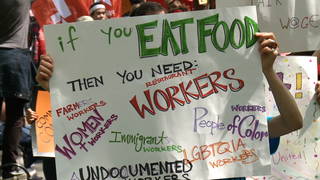 if you EAT FOOD
THEN YOU NEED:
RESTAURANT
WORKERS
FARM WORKERS
WOMEN WORKERS
Immigrant WORKERS
People of Color WORKERS
LGBTQIA WORKERS
UNDOCUMENTED WORKERS
WAGE
United